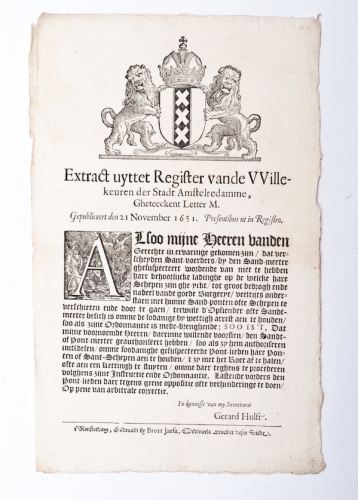 Extract uyttet Register vande VVille-
keuren der Stadt Amstelredamme,
Gheteeckent Letter M.
Gepubliceert den 21 November 1651. Presentibus ut in Registro.
ALsoo mijne Heeren vanden
Gerechte in ervaringe gekomen zijn / dat ver-
scheyden Sant-voerders / by den Sand-meeter
ghesuspecteert wordende van niet te hebben
hare behoorlijcke ladinghe op de welcke hare
Schepen zijn ghe-yckt / tot groot bedrogh ende
nadeel vande goede Burgerye / vertrijts onder-
staen met hunne Sand-ponten ofte Schepen te
versteecken ende door te gaen / terwijle d'Opsiender ofte Sande-
meeter besich is omme de sodanige by wettigh arrest aen te houden /
soo als zijne Ordonnantie is mede-brenghende: SOO IST, Dat
mijne voornoemde Heeren / daerinne willende voorsien / den Sande-
of Pont-meeter geauthoriseert hebben / soo als zy hem authoriseren
mits desen / omme sodanighe gesuspecteerde Pont-lieden hare Pon-
ten of Sant-Schepen aen te houden / 't zy met het Roer af te halen /
ofte aen een kettingh te sluyten / omme daer teghens te procederen
volghens zijne Instructie ende Ordonnantie. Lastende voorders den
Pont-lieden daer tegens geene oppositie ofte verhinderinge te doen /
Op pene van arbitrale correctie.
In kennisse van my Secretaris
Gerard Hulft.
t'Amsterdam, Gedruckt by Broer Jansz, Ordinaris Drucker deser Stede.